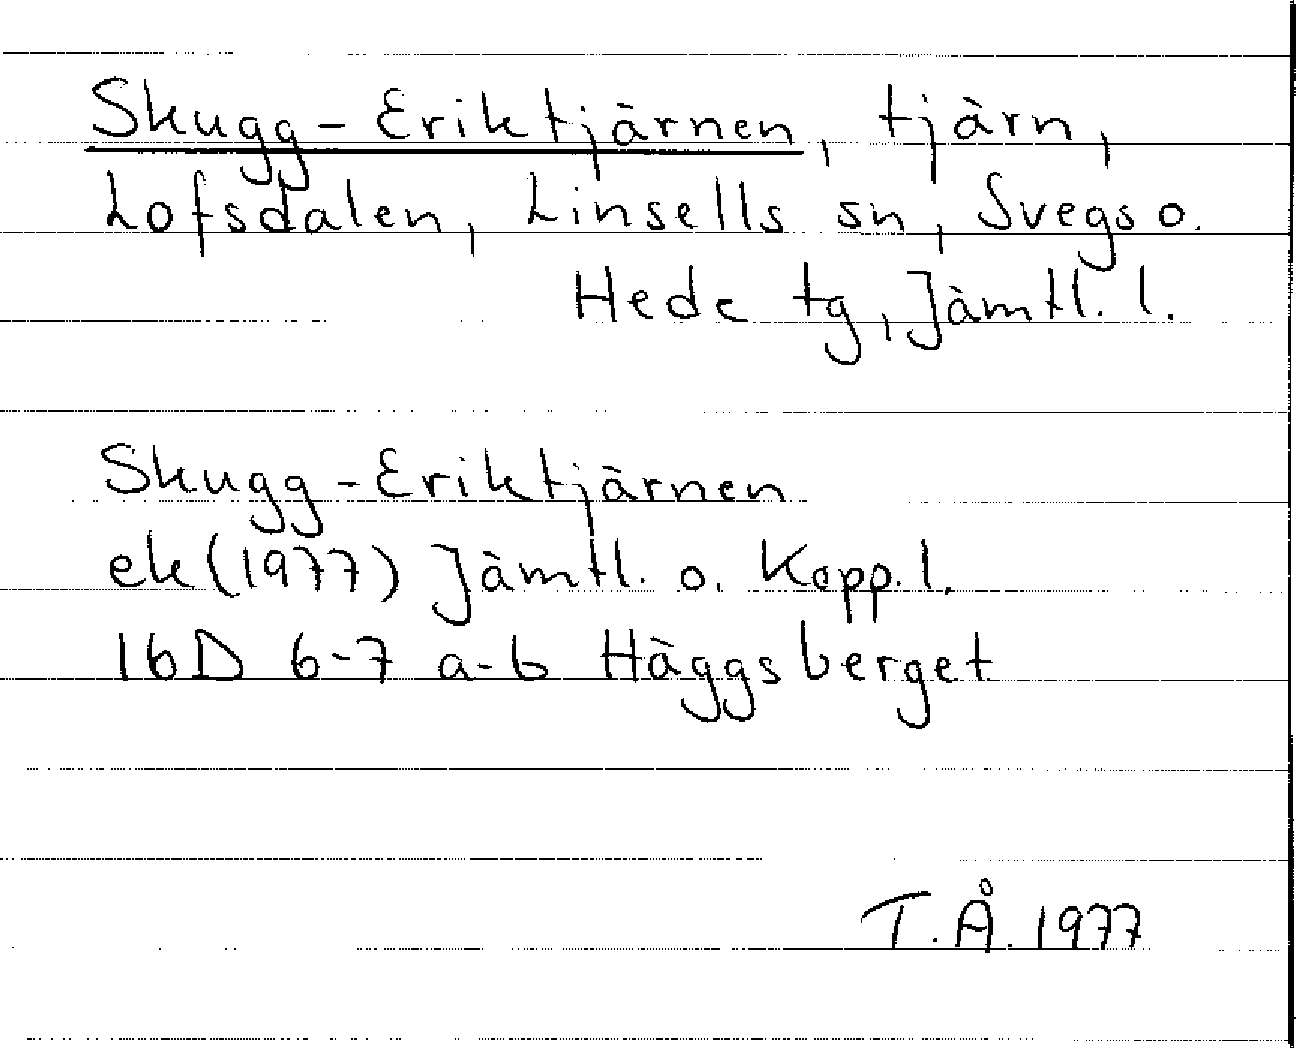 Skugg-Eriktjärnen, tjärn,
Lofsdalen, Linsells sn, Svegs o.
Hede tg, Jämtl. l.
Skugg-Eriktjärnen
ek(1977) Jämtl. o. Kopp. l.
16D 6-7 a-b Häggsberget
T.Å. 1977